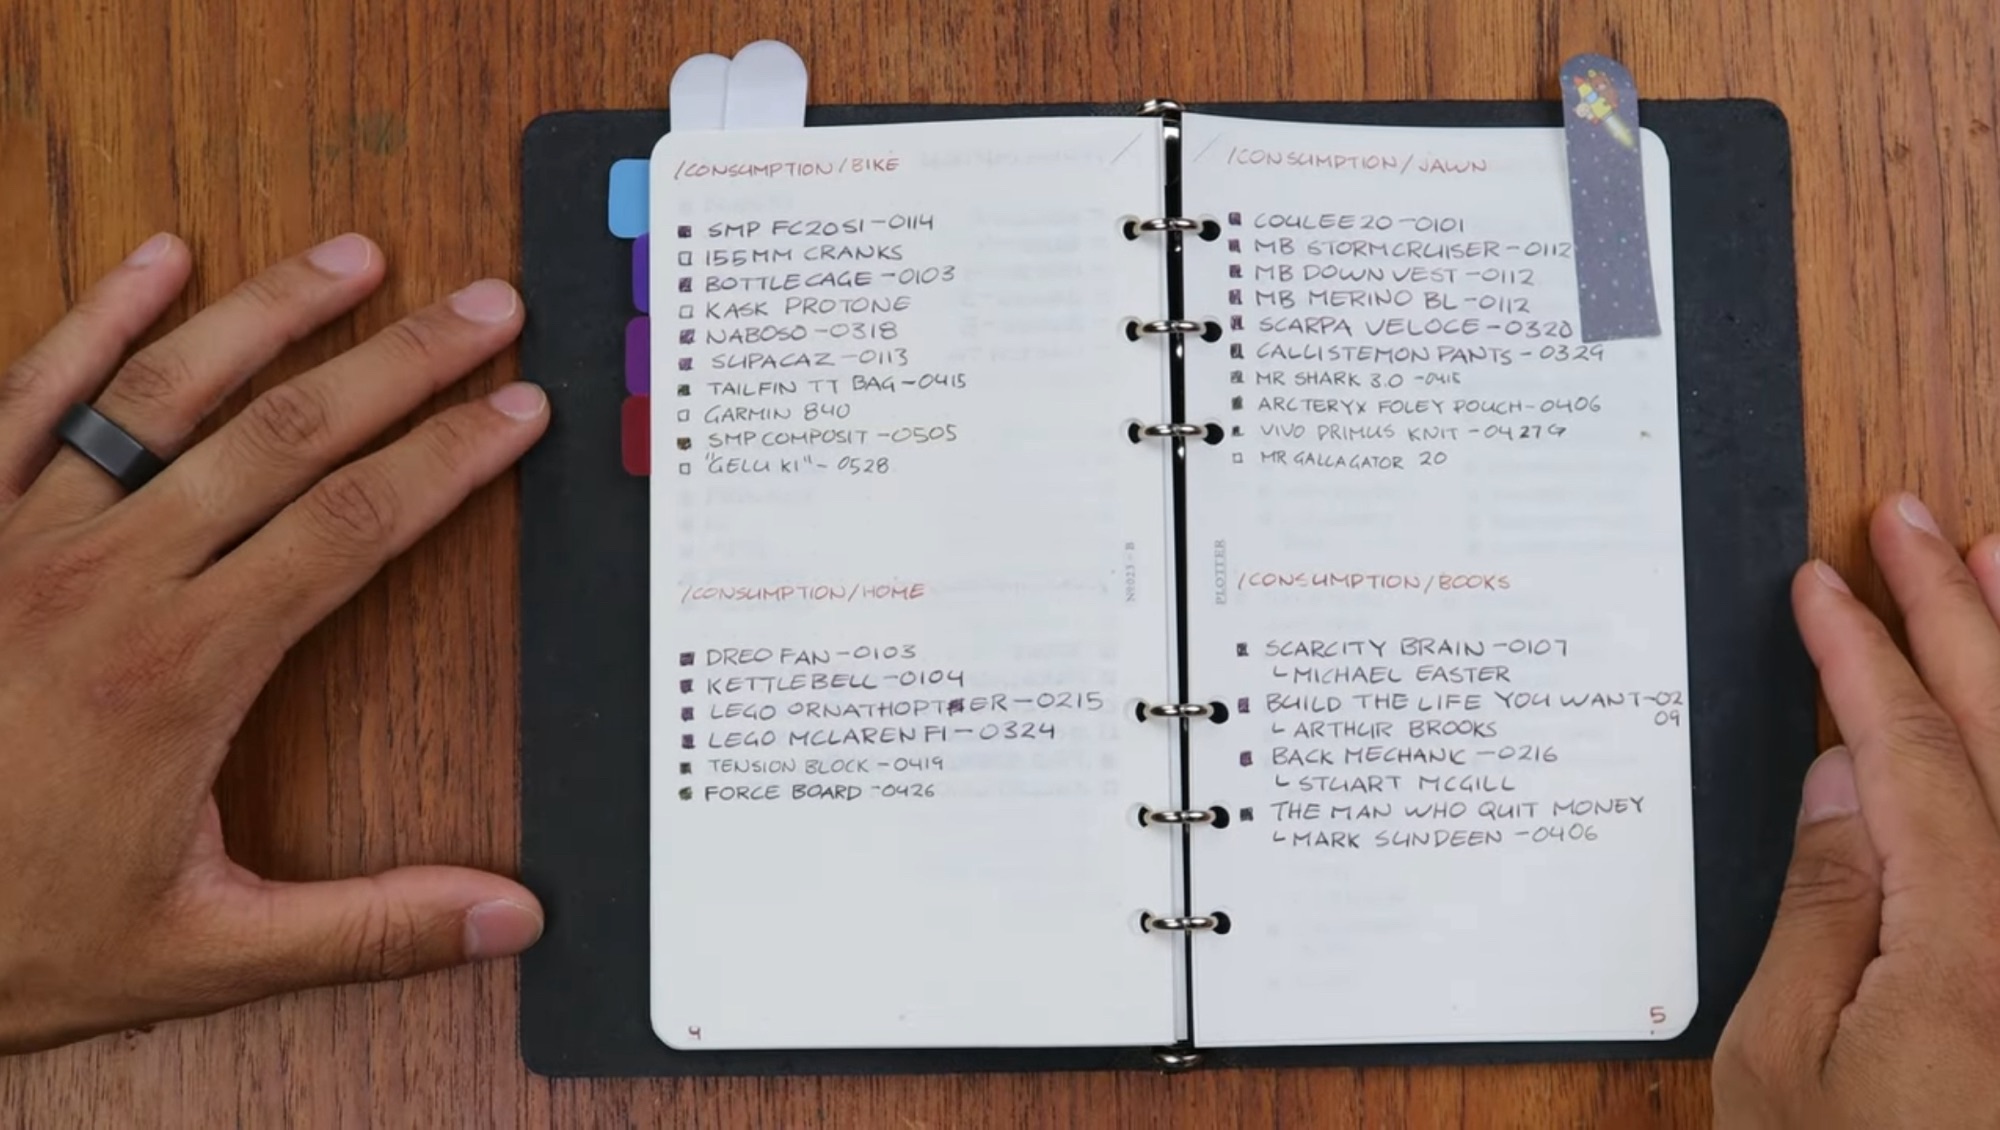 /CONSUMPTION/BIKE
SMP FC20S1-0114
155MM CRANKS
BOTTLECAGE-0103
KASK PROTONE
NABOSO-0318
SUPACAZ-0113
TAILFIN TT BAG-0415
GARMIN 840
SMP COMPOSIT-0505
"GELU K1"- 0528
/CONSUMPTION/HOME
DREO FAN-0103
KETTLEBELL-0104
LEGO ORNATHOPTER-0215
LEGO MCLAREN F1-0324
TENSION BLOCK-0419
FORCE BOARD-0426
4
Nº023-B
/CONSUMPTION/JAWN
COULEE 20-0101
MB STORMCRUISER-0112
MB DOWN VEST-0112
MB MERINO BL-0112
SCARPA VELOCE-0320
CALLISTEMON PANTS-0329
MR SHARK 3.0-0415
ARCTERYX FOLEY POUCH-0406
VIVO PRIMUS KNIT-0427G
MR GALLAGATOR 20
PLOTTER
/CONSUMPTION/BOOKS
SCARCITY BRAIN-0107
└MICHAEL EASTER
BUILD THE LIFE YOU WANT-02
09
└ARTHUR BROOKS
BACK MECHANIC-0216
└STUART MCGILL
THE MAN WHO QUIT MONEY
└MARK SUNDEEN-0406
5